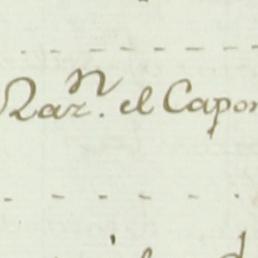 Razn. el Capon